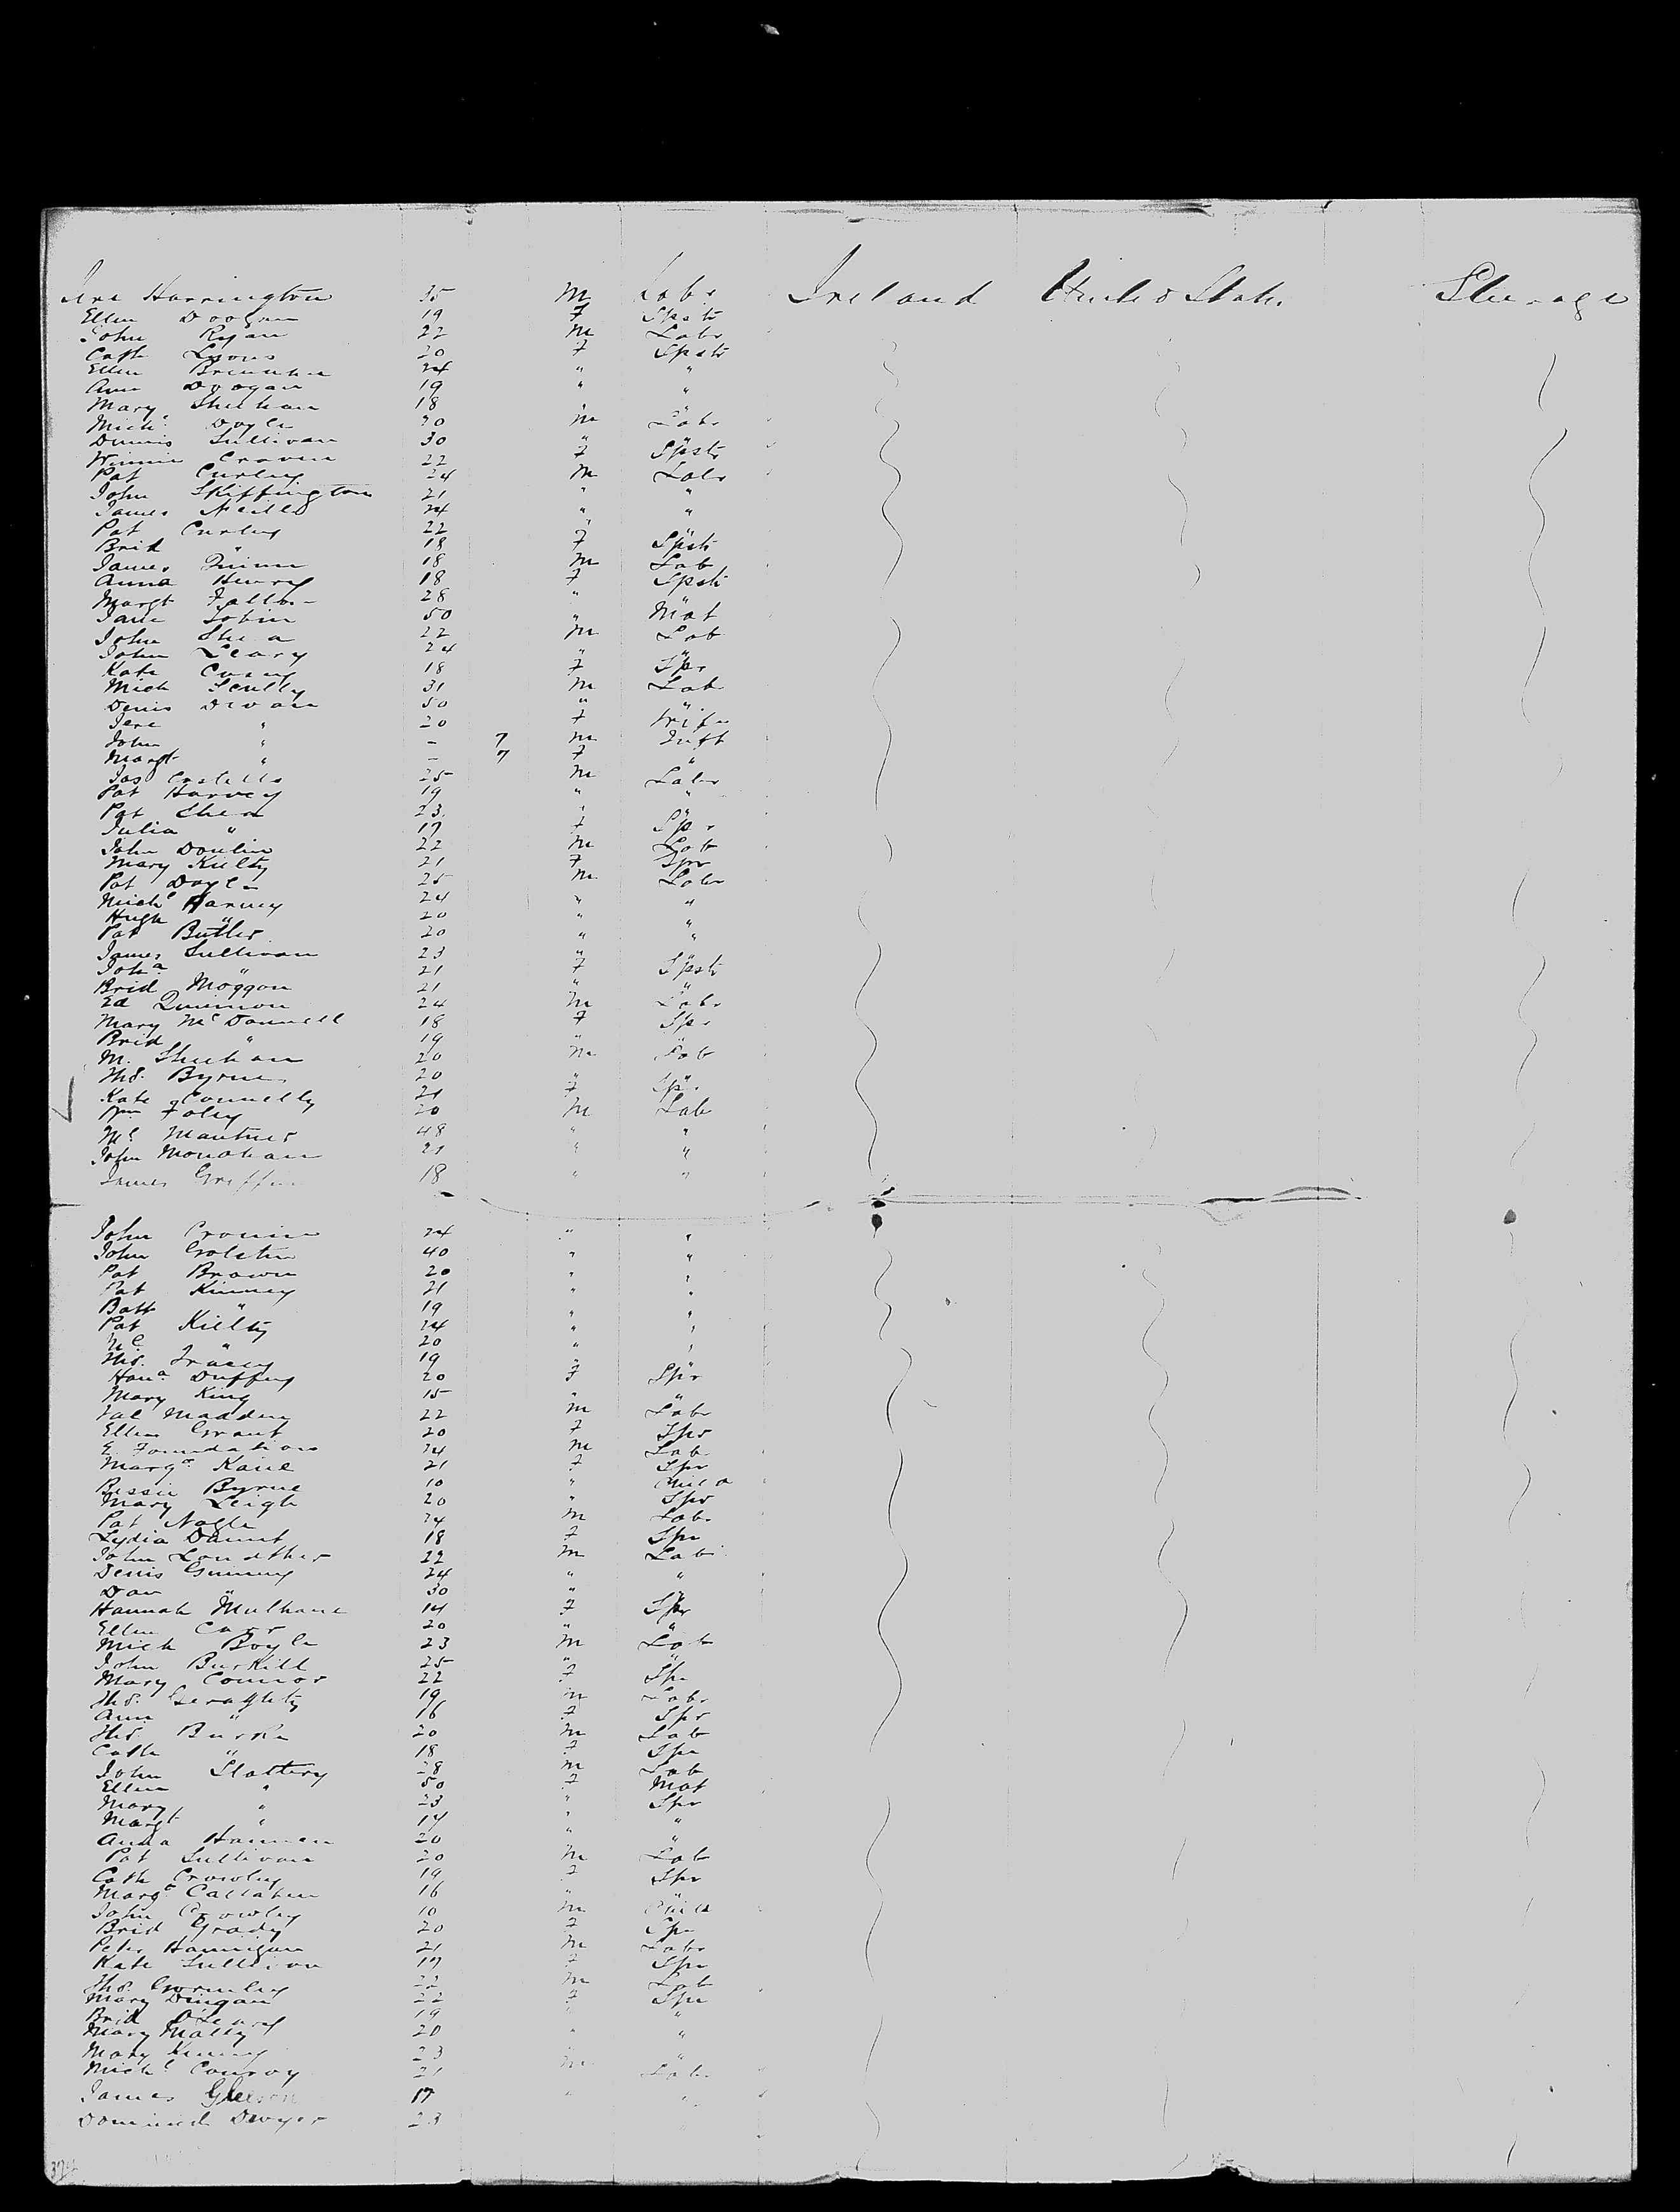 Jere Harrington 35 M Labr Ireland United States Steerage
Ellen Doogan 19 F Spstr
John Ryan 22 M Labr
Cath Lyons 20 F Spstr
Ellen Brennan 24 " "
Ann Doogan 19 " "
Mary Sheehan 18 " "
Michl Doyle 30 M Labr
Dennis Sullivan 30 " "
Winnie Craven 22 F Spstr
Pat Curley 24 M Labr
John Skiffington 21 " "
James Neill 24 " "
Pat Curley 22 "
Brid " 18 F Spstr
James Quinn 18 M Lab
Anna Henry 18 F Spstr
Margt Fallon 28 " "
Jane Tobin 50 " Mat
John Shea 22 M Lab
John Leary 24 " "
Kate 18 F Spr
Mich Scully 31 M Lab
Denis Divan 50 " "
Jere " 20 F Wife
John " - 7 M Inft
Margt " - 7 F "
Jas Costello 25 M Labr
Pat Harvey 19 " "
Pat Shea 23 " "
Julia " 17 F Spr
John Donlin 22 M Lab
Mary Kielty 21 F Spr
Pat Doyle 25 M Labr
Michl Harvey 24 " "
Hugh " 20 " "
Pat Butler 20 " "
James Sullivan 23 " "
Joha " 21 F Spstr
Brid Moggan 21 " "
Ed Quinnon 24 M Labr
Mary McDonnell 18 F Spr
Brid " 19 " "
M. Sheehan 20 M Lab
Ths. Byrne 20 " "
Kate Connelly 21 F Spr
Wm Foley 20 M Lab
Ml 48 " "
John Monahan 21 " "
James Griffin 18 " "
John Cronin 24 " "
John Golsten 40 " "
Pat Brown 20 " "
Pat Kinney 21 " "
Batt " 19 " "
Pat Kielty 24 " "
Ml " 20 " "
Ths. Tracey 19 " "
Hana Duffey 20 F Spr
Mary King 15 " "
Val Madden 22 M Labr
Ellen Grant 20 F Spr
E. Foundation 24 M Lab
Margt Kane 21 F Spr
Bessie Byrne 10 " Child
Mary Leigh 20 " Spr
Pat Nagle 24 M Lab.
Lydia Daunt 18 F Spr
John 22 M Lab
Denis 24 " "
Dan " 30 " "
Hannah Mulhane 14 F Spr
Ellen Carr 20 " "
Mich Boyle 23 M Lab
John Burkill 25 " "
Mary Connor 22 F Spr
Ths. Geraghty 19 M Labr
Ann " 16 F Spr
Ths. Burke 20 M Lab
Cath " 18 F Spr
John Slattery 28 M Lab
Ellen " 50 F Mat
Mary " 23 " Spr
Margt " 14 " "
Anna Hannan 20 " "
Pat Sullivan 20 M Lab
Cath Crowley 19 F Spr
Margt Callahan 16 " "
John Crowley 10 M Child
Brid Grady 20 F Spr
Peter Hannigan 21 M Labr
Kate Sullivan 17 F Spr
Ths. Gormley 22 M Lab
Mary Dingan 22 F Spr
Brid O'Leary 19 " "
Mary Mally 20 " "
Mary Kinney 23 " "
Michl Conroy 21 M Lab.
James Gleeson 17 " "
Dominick Dwyer 23